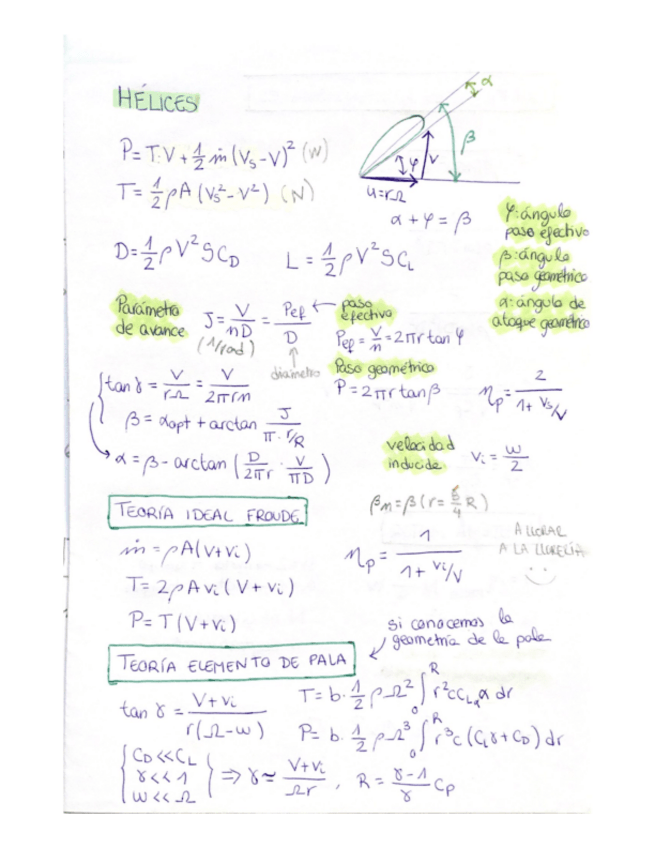 HÉLICES
P = T·V + 1/2 ṁ (Vs - V)² (W)
T = 1/2 ρA (Vs² - V²) (N)
α
β
φ
V
u = rΩ
α + φ = β
φ: ángulo
paso efectivo
β: ángulo
paso geométrico
α: ángulo de
ataque geométrico
D = 1/2 ρV²SC_D
L = 1/2 ρV²SC_L
Parámetro
de avance
J = V/nD = Pef/D
(1/rad)
diámetro
paso
efectivo
Pef = V/n = 2πr tan φ
Paso geométrico
P = 2πr tan β
ηp = 2/(1 + Vs/V)
tan γ = V/rΩ = V/2πrn
β = αopt + arctan J/(π·r/R)
α = β - arctan (D/2πr · V/ΠD)
velocidad
inducida
Vi = W/2
TEORÍA IDEAL FROUDE
ṁ = ρA(V + Vi)
T = 2ρAVi(V + Vi)
P = T(V + Vi)
ηp = 1/(1 + Vi/V)
A LLORAR
A LA LLORERÍA
si conocemos la
geometría de la pala
TEORÍA ELEMENTO DE PALA
tan γ = (V + Vi)/(r(Ω - w))
T = b· 1/2 ρΩ² ∫₀ᴿ r²cC_Lα α dr
P = b· 1/2 ρΩ³ ∫₀ᴿ r³c (C_Lγ + C_D) dr
C_D << C_L
γ << 1
W << Ω
⇒ γ ≃ (V + Vi)/Ωr , R = (γ - 1)/γ Cp